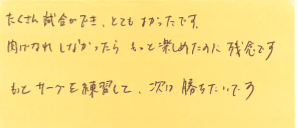 たくさん試合ができ、とてもよかったです。
肉ばなれしなかったらもっと楽しめたのに残念です
もっとサーブを練習して、次は勝ちたいです